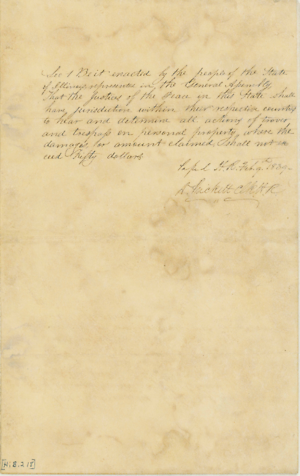 Sec 1 Be it enacted by the people of the State
of Illinois represented in the General Assembly
That the Justices of the Peace in this State shall
have jurisdiction within their respective counties
to hear and determine all actions of trover
and trespass on personal property, where the
damages or amount claimed shall not ex
ceed fifty dollars
H. R. Feby
Prickett C. H. R.
[H.B. 215]